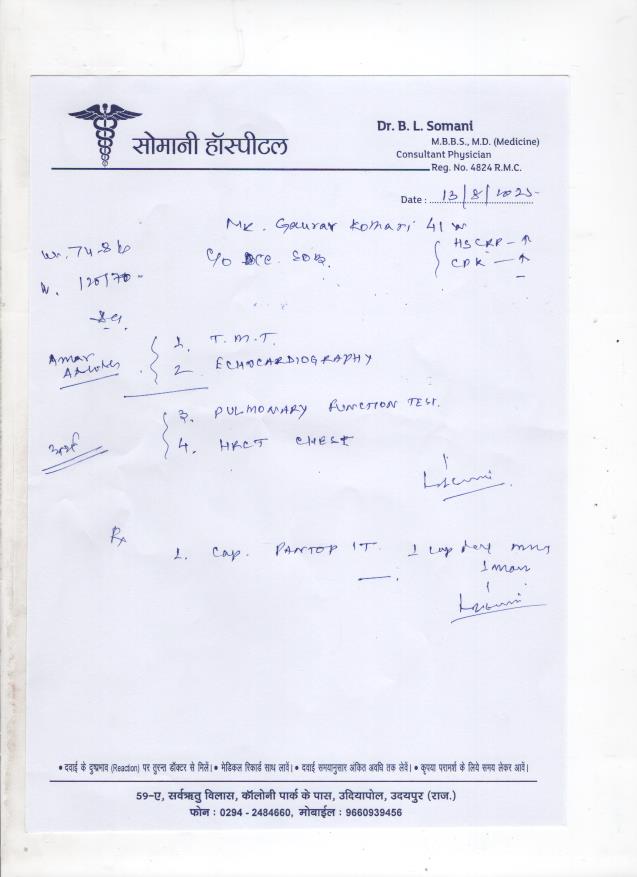 सोमानी हॉस्पीटल
Dr. B. L. Somani
M.B.B.S., M.D. (Medicine)
Consultant Physician
Reg. No. 4824 R.M.C.
Date : 13/8/2025
Mr. Gaurav Kothari 41
HSCRP - ↑
CPK - ↑
C/O SOB.
120/70
1. T.M.T.
2. ECHOCARDIOGRAPHY
Amar
3. PULMONARY FUNCTION TEST.
4. HRCT CHEST
Rx
1. Cap. PANTOP IT. 1 cap
• दवाई के दुष्प्रभाव (Reaction) पर तुरन्त डॉक्टर से मिलें। • मेडिकल रिकार्ड साथ लावें। • दवाई समयानुसार अंकित अवधि तक लेवें। • कृपया परामर्श के लिये समय लेकर आवें।
59-ए, सर्वऋतु विलास, कॉलोनी पार्क के पास, उदियापोल, उदयपुर (राज.)
फोन : 0294 - 2484660, मोबाईल : 9660939456